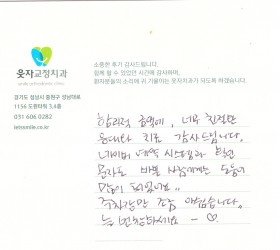 웃자교정치과
경기도 성남시 중원구 성남대로
1156 도원타워 3,4층
031 606 0282
letrsmile.co.kr
소중한 후기 감사드립니다.
함께 할 수 있었던 시간에 감사하며,
환자분들의 소리에 귀 기울이는 웃자교정치과가 되도록 하겠습니다.
합리적 금액에, 너무 친절한
응대와 치료 감사드립니다.
네이버 예약 시스템과 확인
문자도 바쁜 사람에게는 도움이
많이 되었어요.
주차장만 좀 아쉽습니다.
늘 번창하세요 - ♡